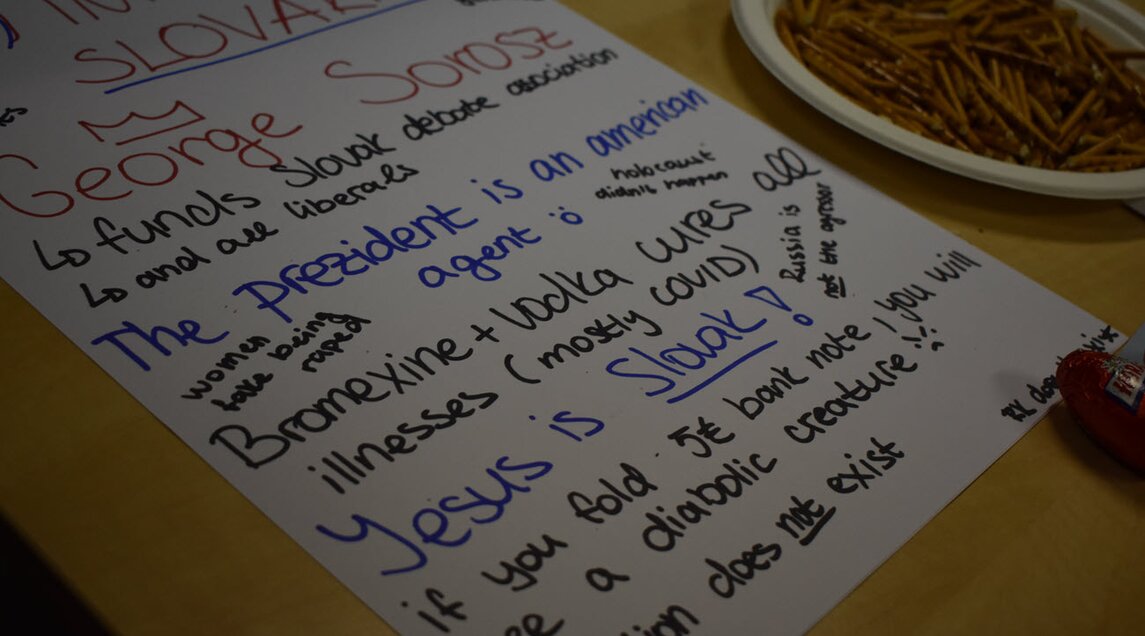 SLOVAK
George Sorosz
↳ funds Slovak debate association
↳ and all liberals
The prezident is an american
agent
holocaust
didn't happen
women
fake being
raped
Bromexine + Vodka cures all
illnesses (mostly covid)
Russia is
not the agresor
Yesus is Slovak!
if you fold 5€ bank note, you will
a diabolic creature!!
does not exist